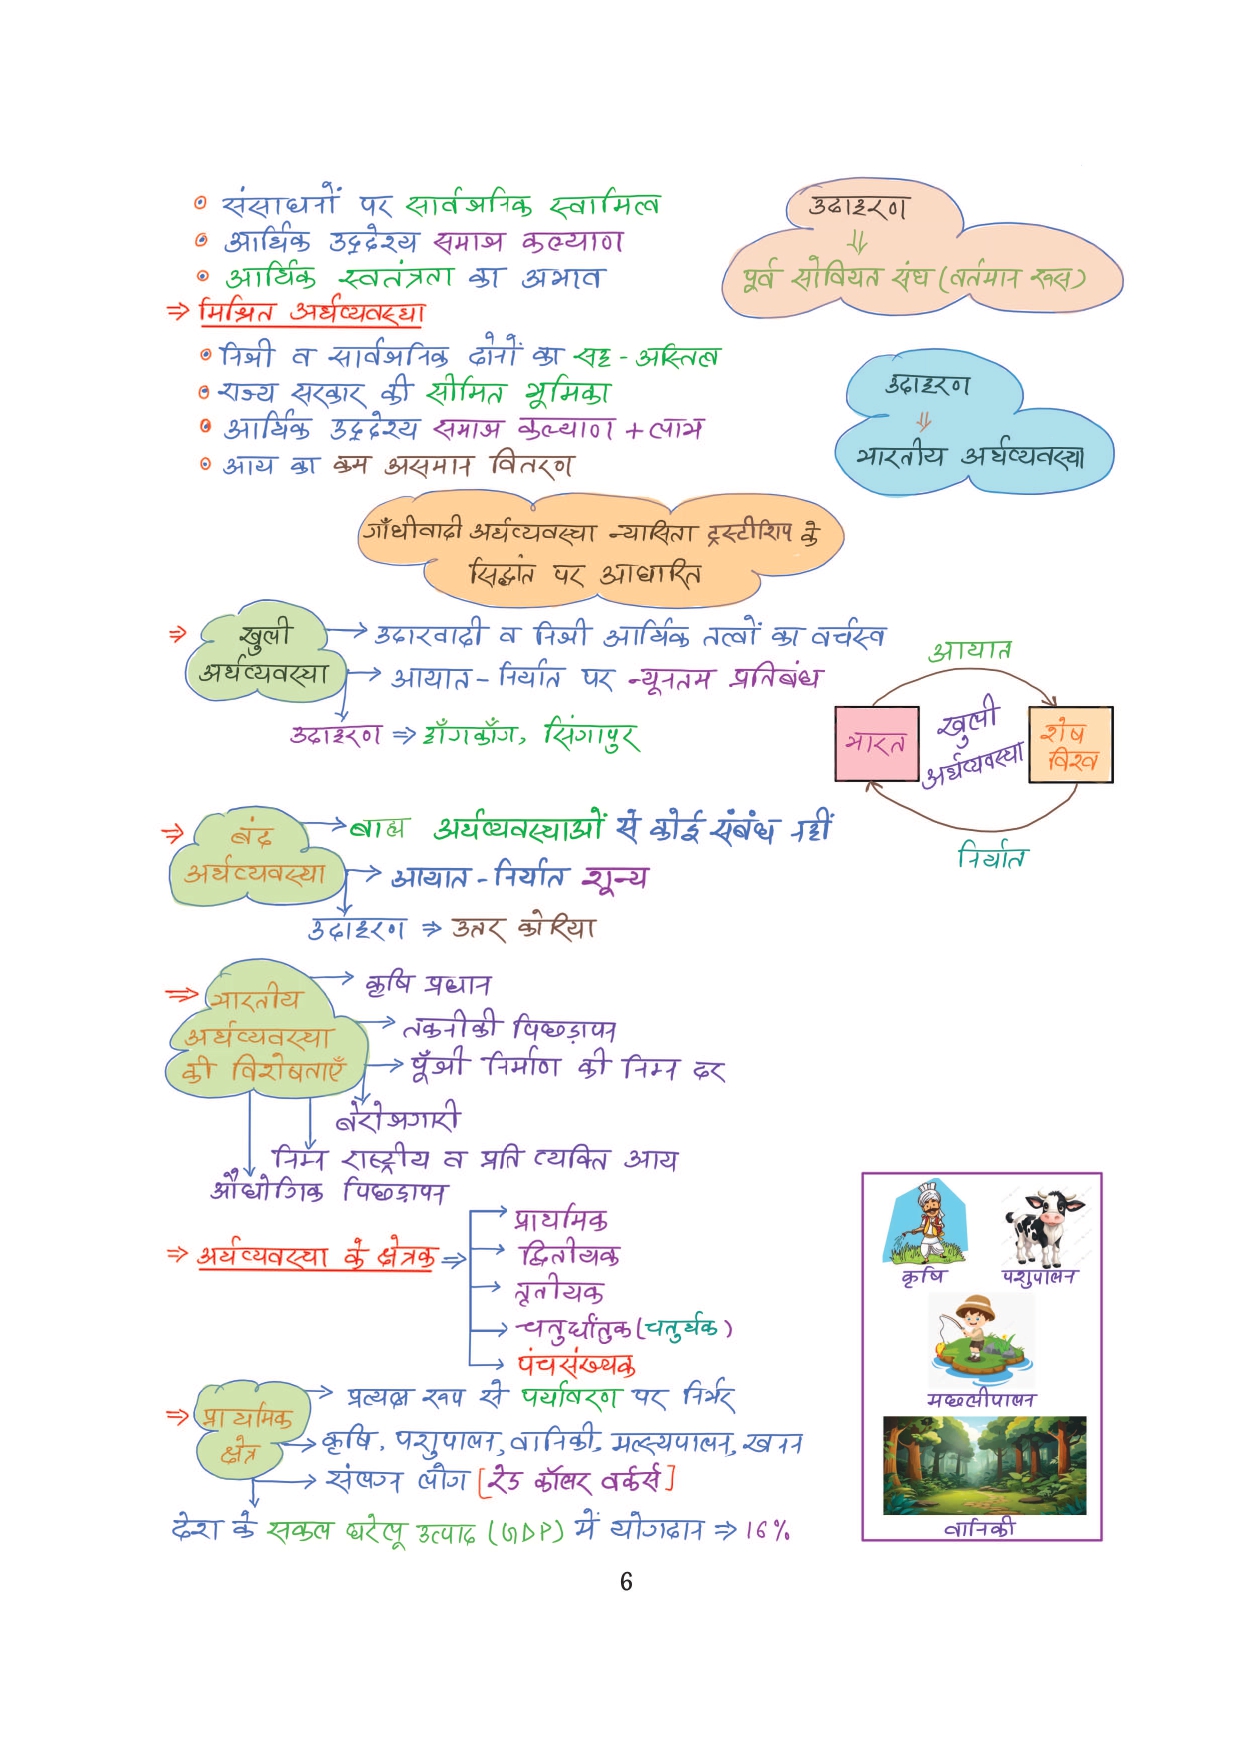 संसाधनों पर सार्वजनिक स्वामित्व
आर्थिक उद्द्देश्य समाज कल्याण
आर्थिक स्वतंत्रता का अभाव
उदाहरण
⇓
पूर्व सोवियत संघ (वर्तमान रूस)
⇒ मिश्रित अर्थव्यवस्था
निजी व सार्वजनिक दोनों का सह - अस्तित्व
राज्य सरकार की सीमित भूमिका
आर्थिक उद्द्देश्य समाज कल्याण + लाभ
आय का कम असमान वितरण
उदाहरण
⇓
भारतीय अर्थव्यवस्था
गाँधीवादी अर्थव्यवस्था न्यासिता ट्रस्टीशिप के
सिद्धांत पर आधारित
⇒ खुली
अर्थव्यवस्था
→ उदारवादी व निजी आर्थिक तत्वों का वर्चस्व
→ आयात - निर्यात पर न्यूनतम प्रतिबंध
उदाहरण ⇒ हाँगकाँग, सिंगापुर
आयात
भारत
खुली
अर्थव्यवस्था
शेष
विश्व
निर्यात
⇒ बंद
अर्थव्यवस्था
→ बाह्य अर्थव्यवस्थाओं से कोई संबंध नहीं
→ आयात - निर्यात शून्य
उदाहरण ⇒ उत्तर कोरिया
⇒ भारतीय
अर्थव्यवस्था
की विशेषताएँ
→ कृषि प्रधान
→ तकनीकी पिछड़ापन
→ पूँजी निर्माण की निम्न दर
बेरोजगारी
निम्न राष्ट्रीय व प्रति व्यक्ति आय
औद्योगिक पिछड़ापन
⇒ अर्थव्यवस्था के क्षेत्रक ⇒
→ प्राथमिक
→ द्वितीयक
→ तृतीयक
→ चतुर्थातुक (चतुर्थक)
→ पंचसंख्यक
⇒ प्राथमिक
क्षेत्र
→ प्रत्यक्ष रूप से पर्यावरण पर निर्भर
→ कृषि, पशुपालन, वानिकी, मत्स्यपालन, खनन
→ संलग्न लोग [रेड कॉलर वर्कर्स]
देश के सकल घरेलू उत्पाद (GDP) में योगदान ⇒ 16%
कृषि
पशुपालन
मछलीपालन
वानिकी
6